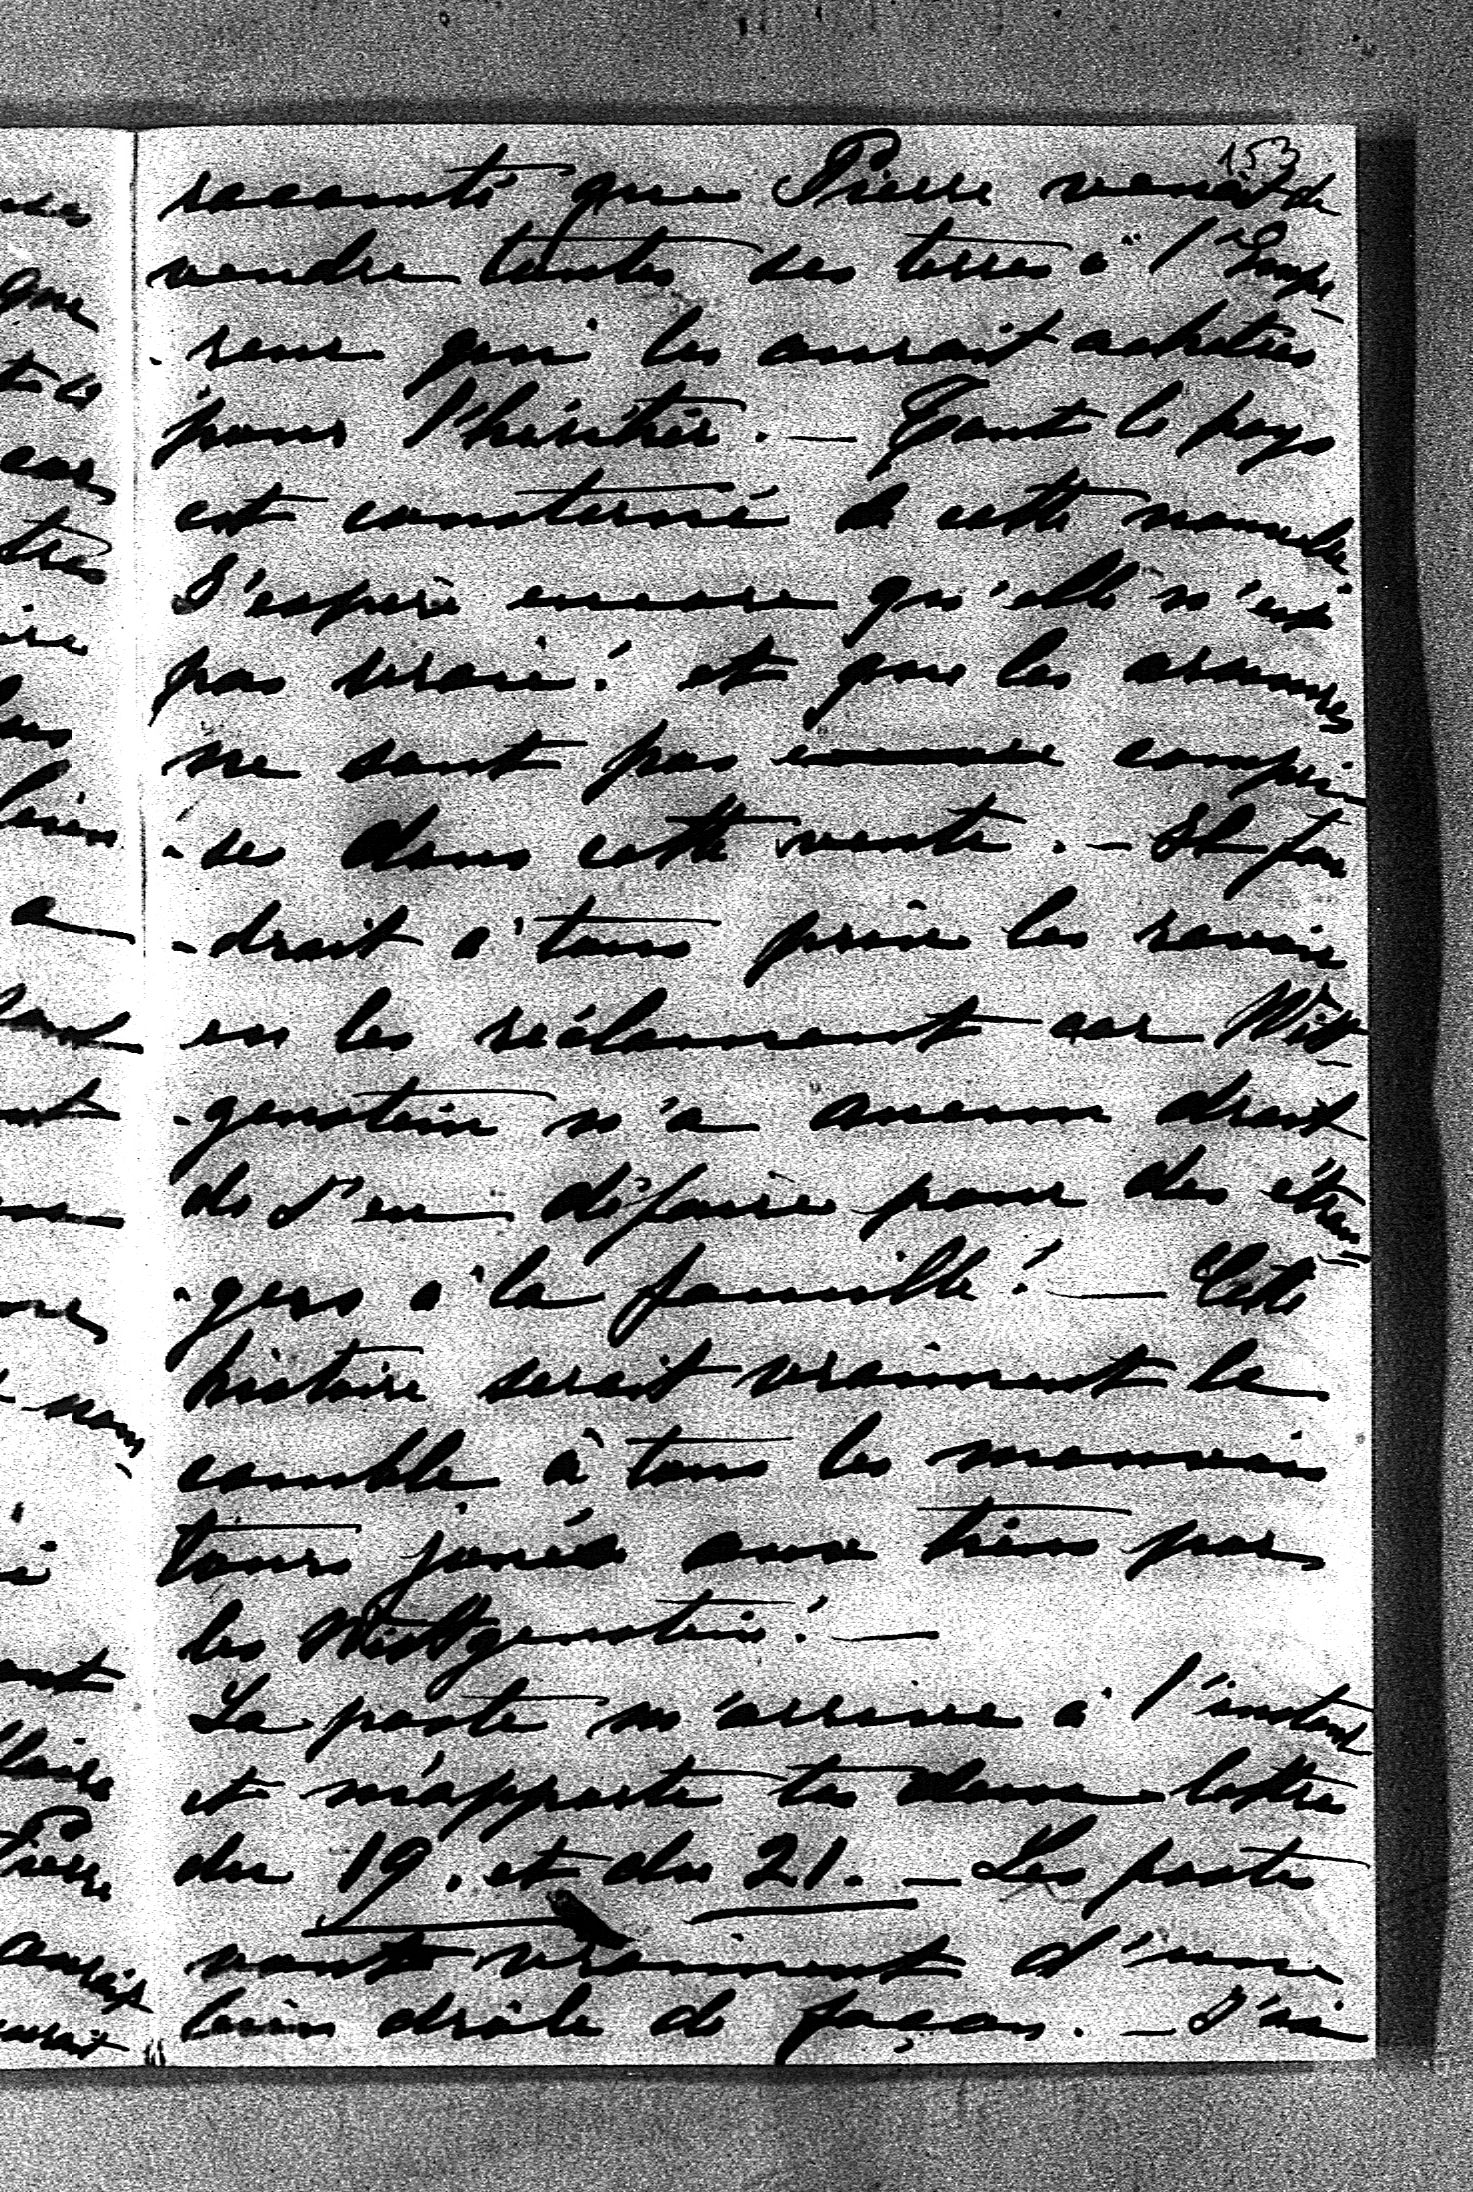 153
raconté que Pierre venait de
vendre toutes ses terres à l'Empe
-reur qui les aurait achetées
pour l'héritier. — Tout le pays
est consterné de cette nouvelle
J'espère encore qu'elle n'est
pas vraie! et que les
ne sont pas encore compri
-ses dans cette vente. — Il fau
-drait à tout prix les ravoir
en les réclamant car Witt
-genstein n'a aucun droit
de s'en défaire pour des étran
-gers à la famille! — Cette
histoire serait vraiment le
comble à tous les mauvais
tours joués aux tiens par
les Wittgenstein! —
La poste m'arrive à l'instant
et m'apporte tes deux lettres
du 19. et du 21. — Les postes
vont vraiment d'une
bien drôle de façon. — J'ai
que
car
très
a
Pierre
aurait